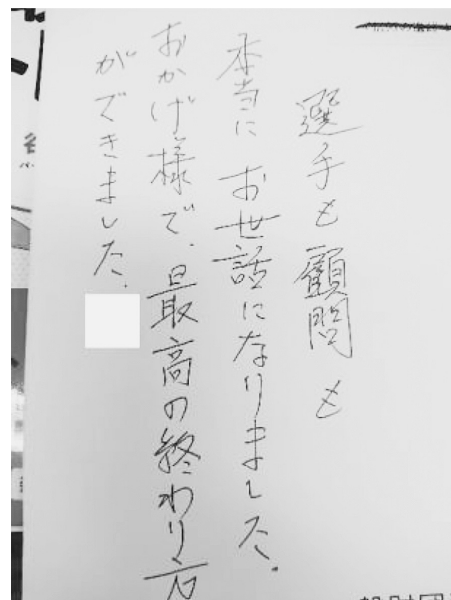 選手も顧問も
本当にお世話になりました。
おかげ様で、最高の終わり方
ができました。